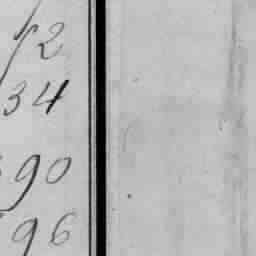 52
34
90
96